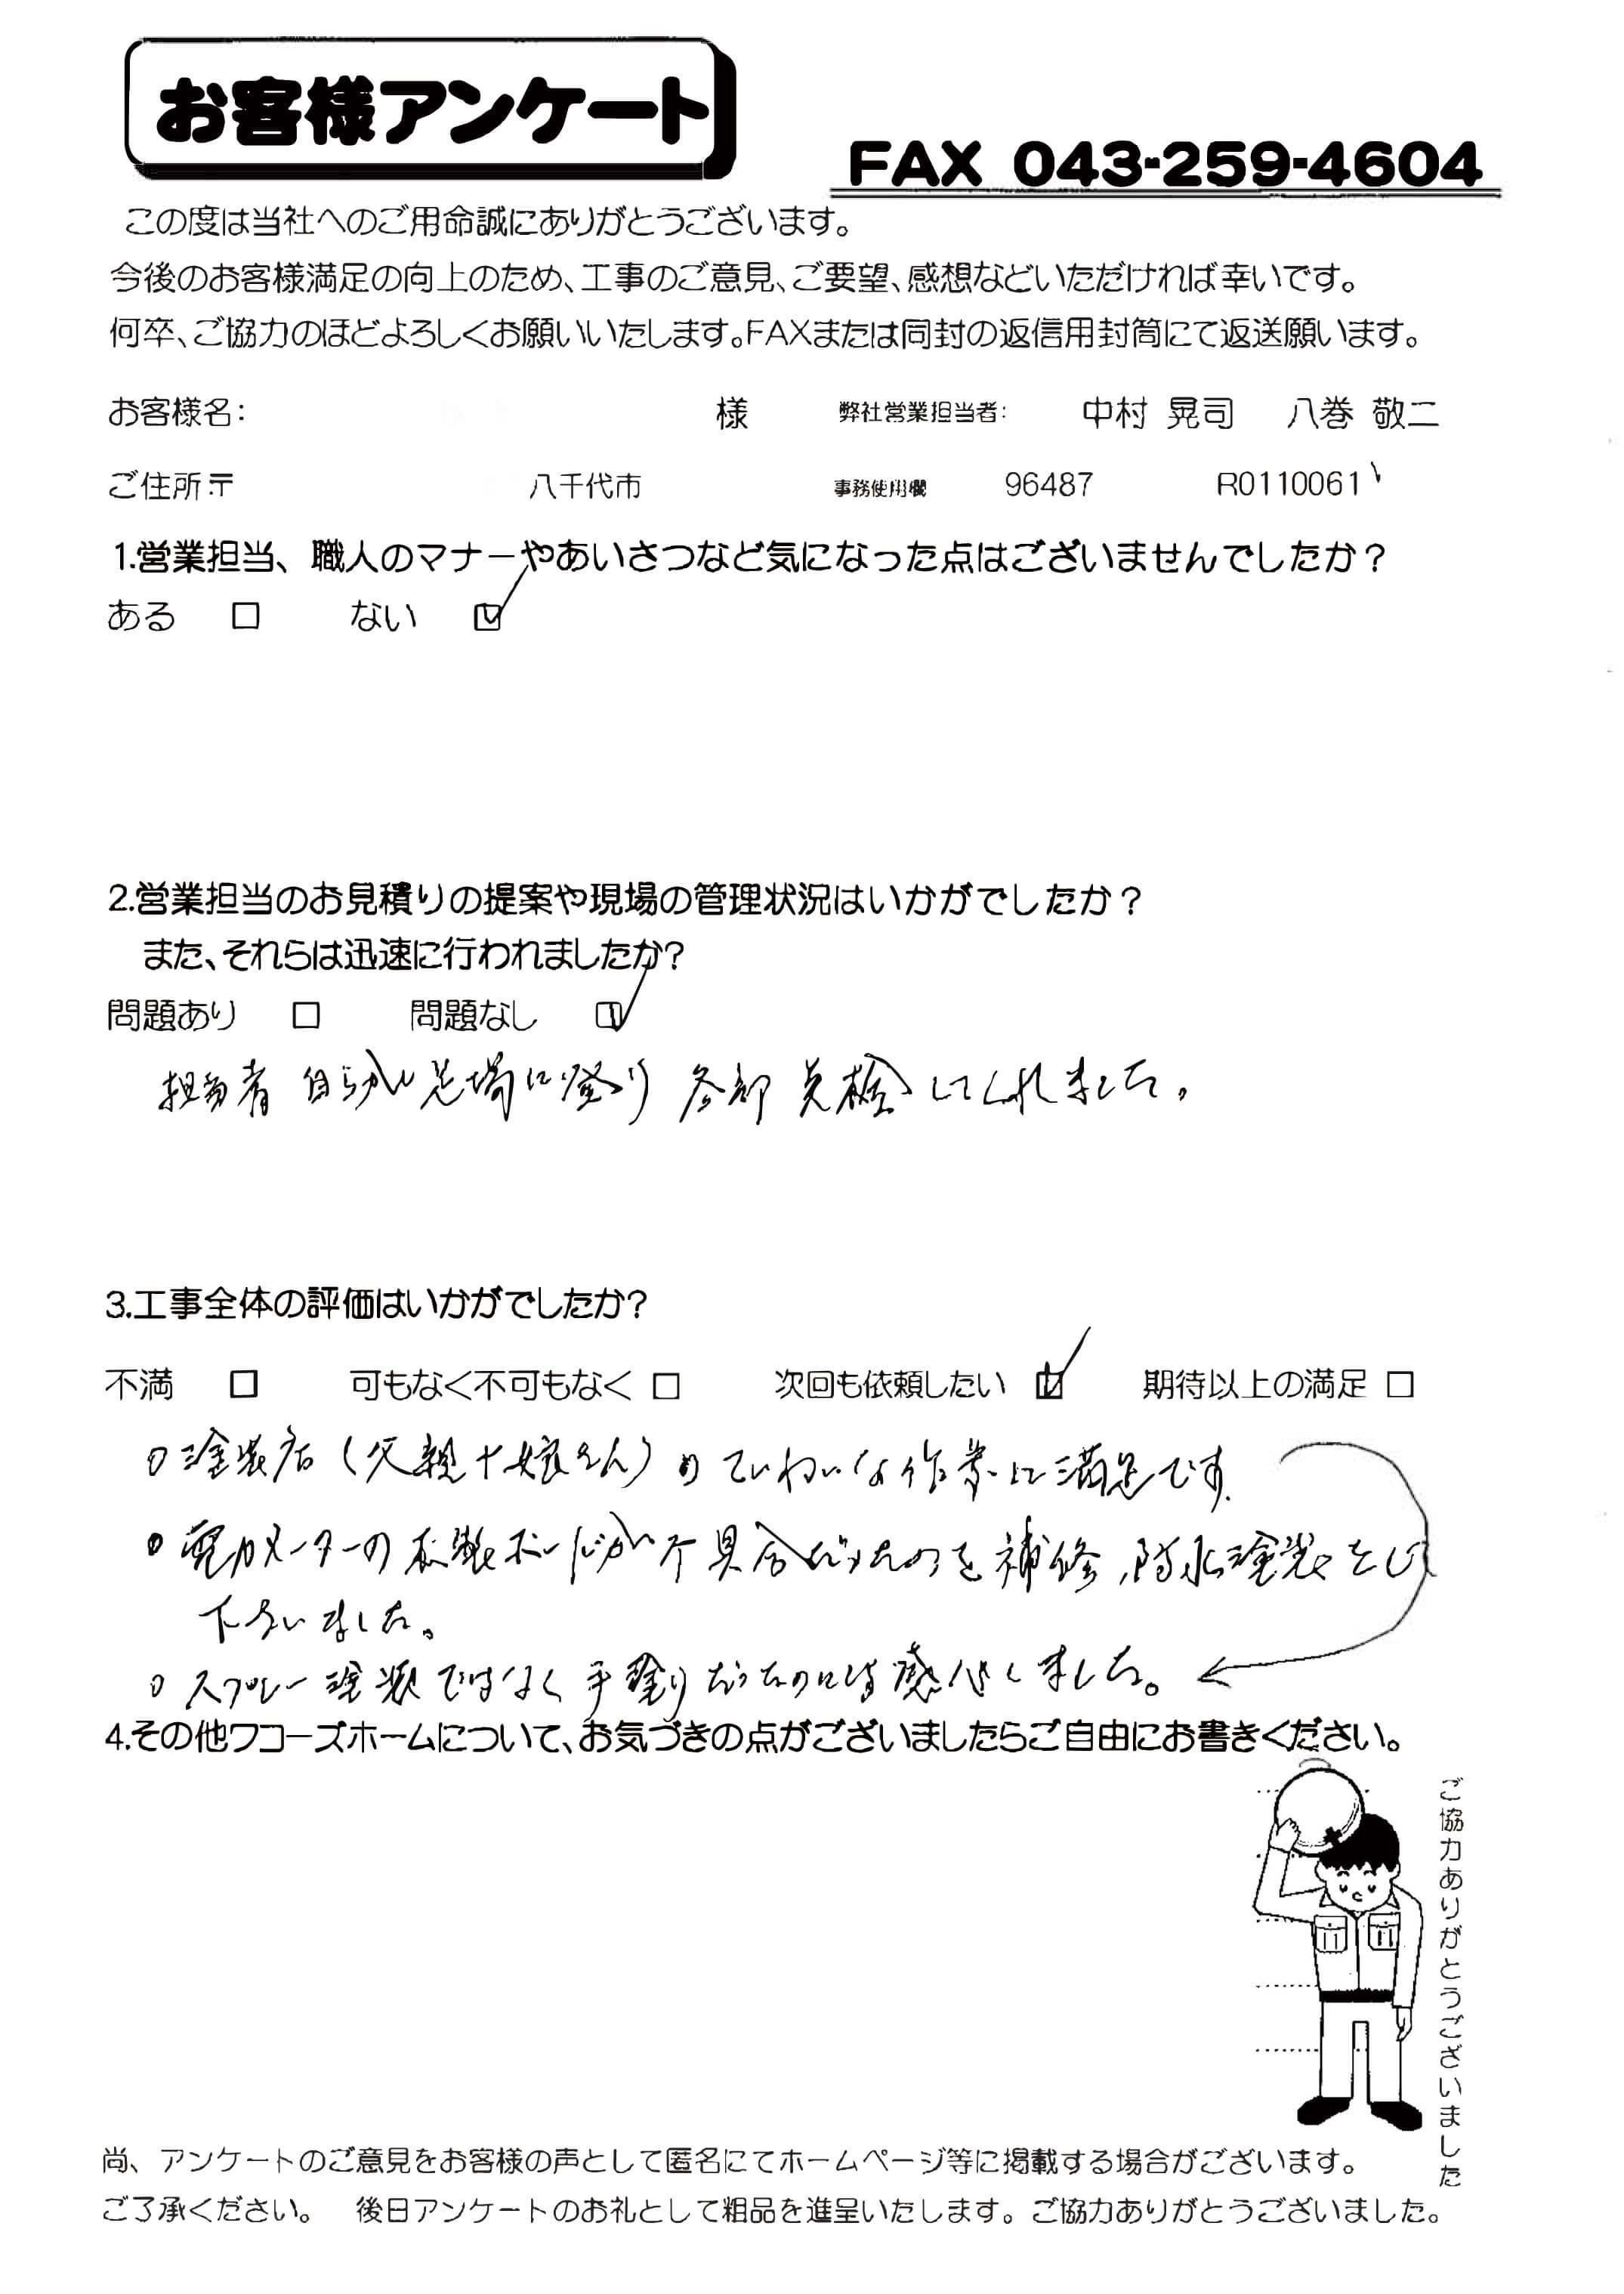 お客様アンケート
FAX 043-259-4604
この度は当社へのご用命誠にありがとうございます。
今後のお客様満足の向上のため、工事のご意見、ご要望、感想などいただければ幸いです。
何卒、ご協力のほどよろしくお願いいたします。FAXまたは同封の返信用封筒にて返送願います。
お客様名: 様 弊社営業担当者: 中村 晃司 八巻 敬二
ご住所:〒 八千代市 事務使用欄 96487 R0110061
1.営業担当、職人のマナーやあいさつなど気になった点はございませんでしたか?
ある □ ない ☑
2.営業担当のお見積りの提案や現場の管理状況はいかがでしたか?
また、それらは迅速に行われましたか?
問題あり □ 問題なし ☑
担当者 自らが足場に登り 各部 点検してくれました。
3.工事全体の評価はいかがでしたか?
不満 □ 可もなく不可もなく □ 次回も依頼したい ☑ 期待以上の満足 □
○ 塗装店(父親+娘さん)のていねいな作業に満足です。
○ 電力メーターの木製ボードが不具合だったのを補修,防水塗装をして
下さいました。
○ スプレー塗装ではなく手塗りだったのには感心しました。
4.その他ワコーズホームについて、お気づきの点がございましたらご自由にお書きください。
ご協力ありがとうございました
尚、アンケートのご意見をお客様の声として匿名にてホームページ等に掲載する場合がございます。
ご了承ください。 後日アンケートのお礼として粗品を進呈いたします。ご協力ありがとうございました。